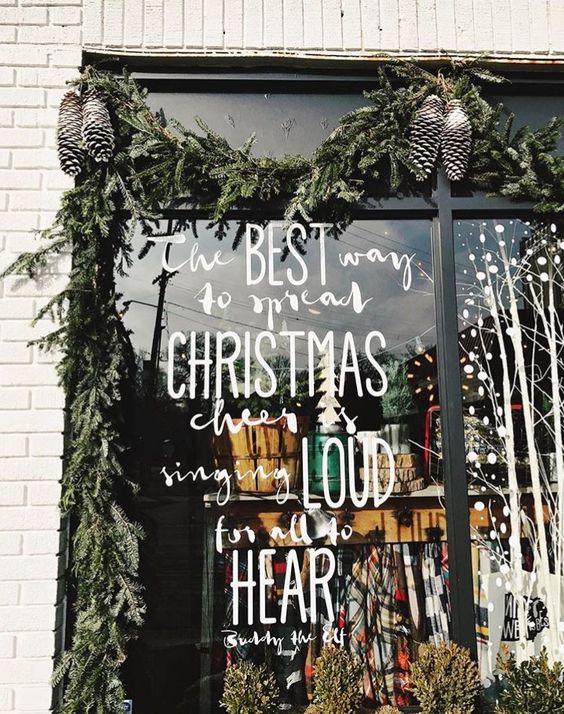 The BEST way
to spread
CHRISTMAS
cheer is
singing LOUD
for all to
HEAR
Buddy the elf